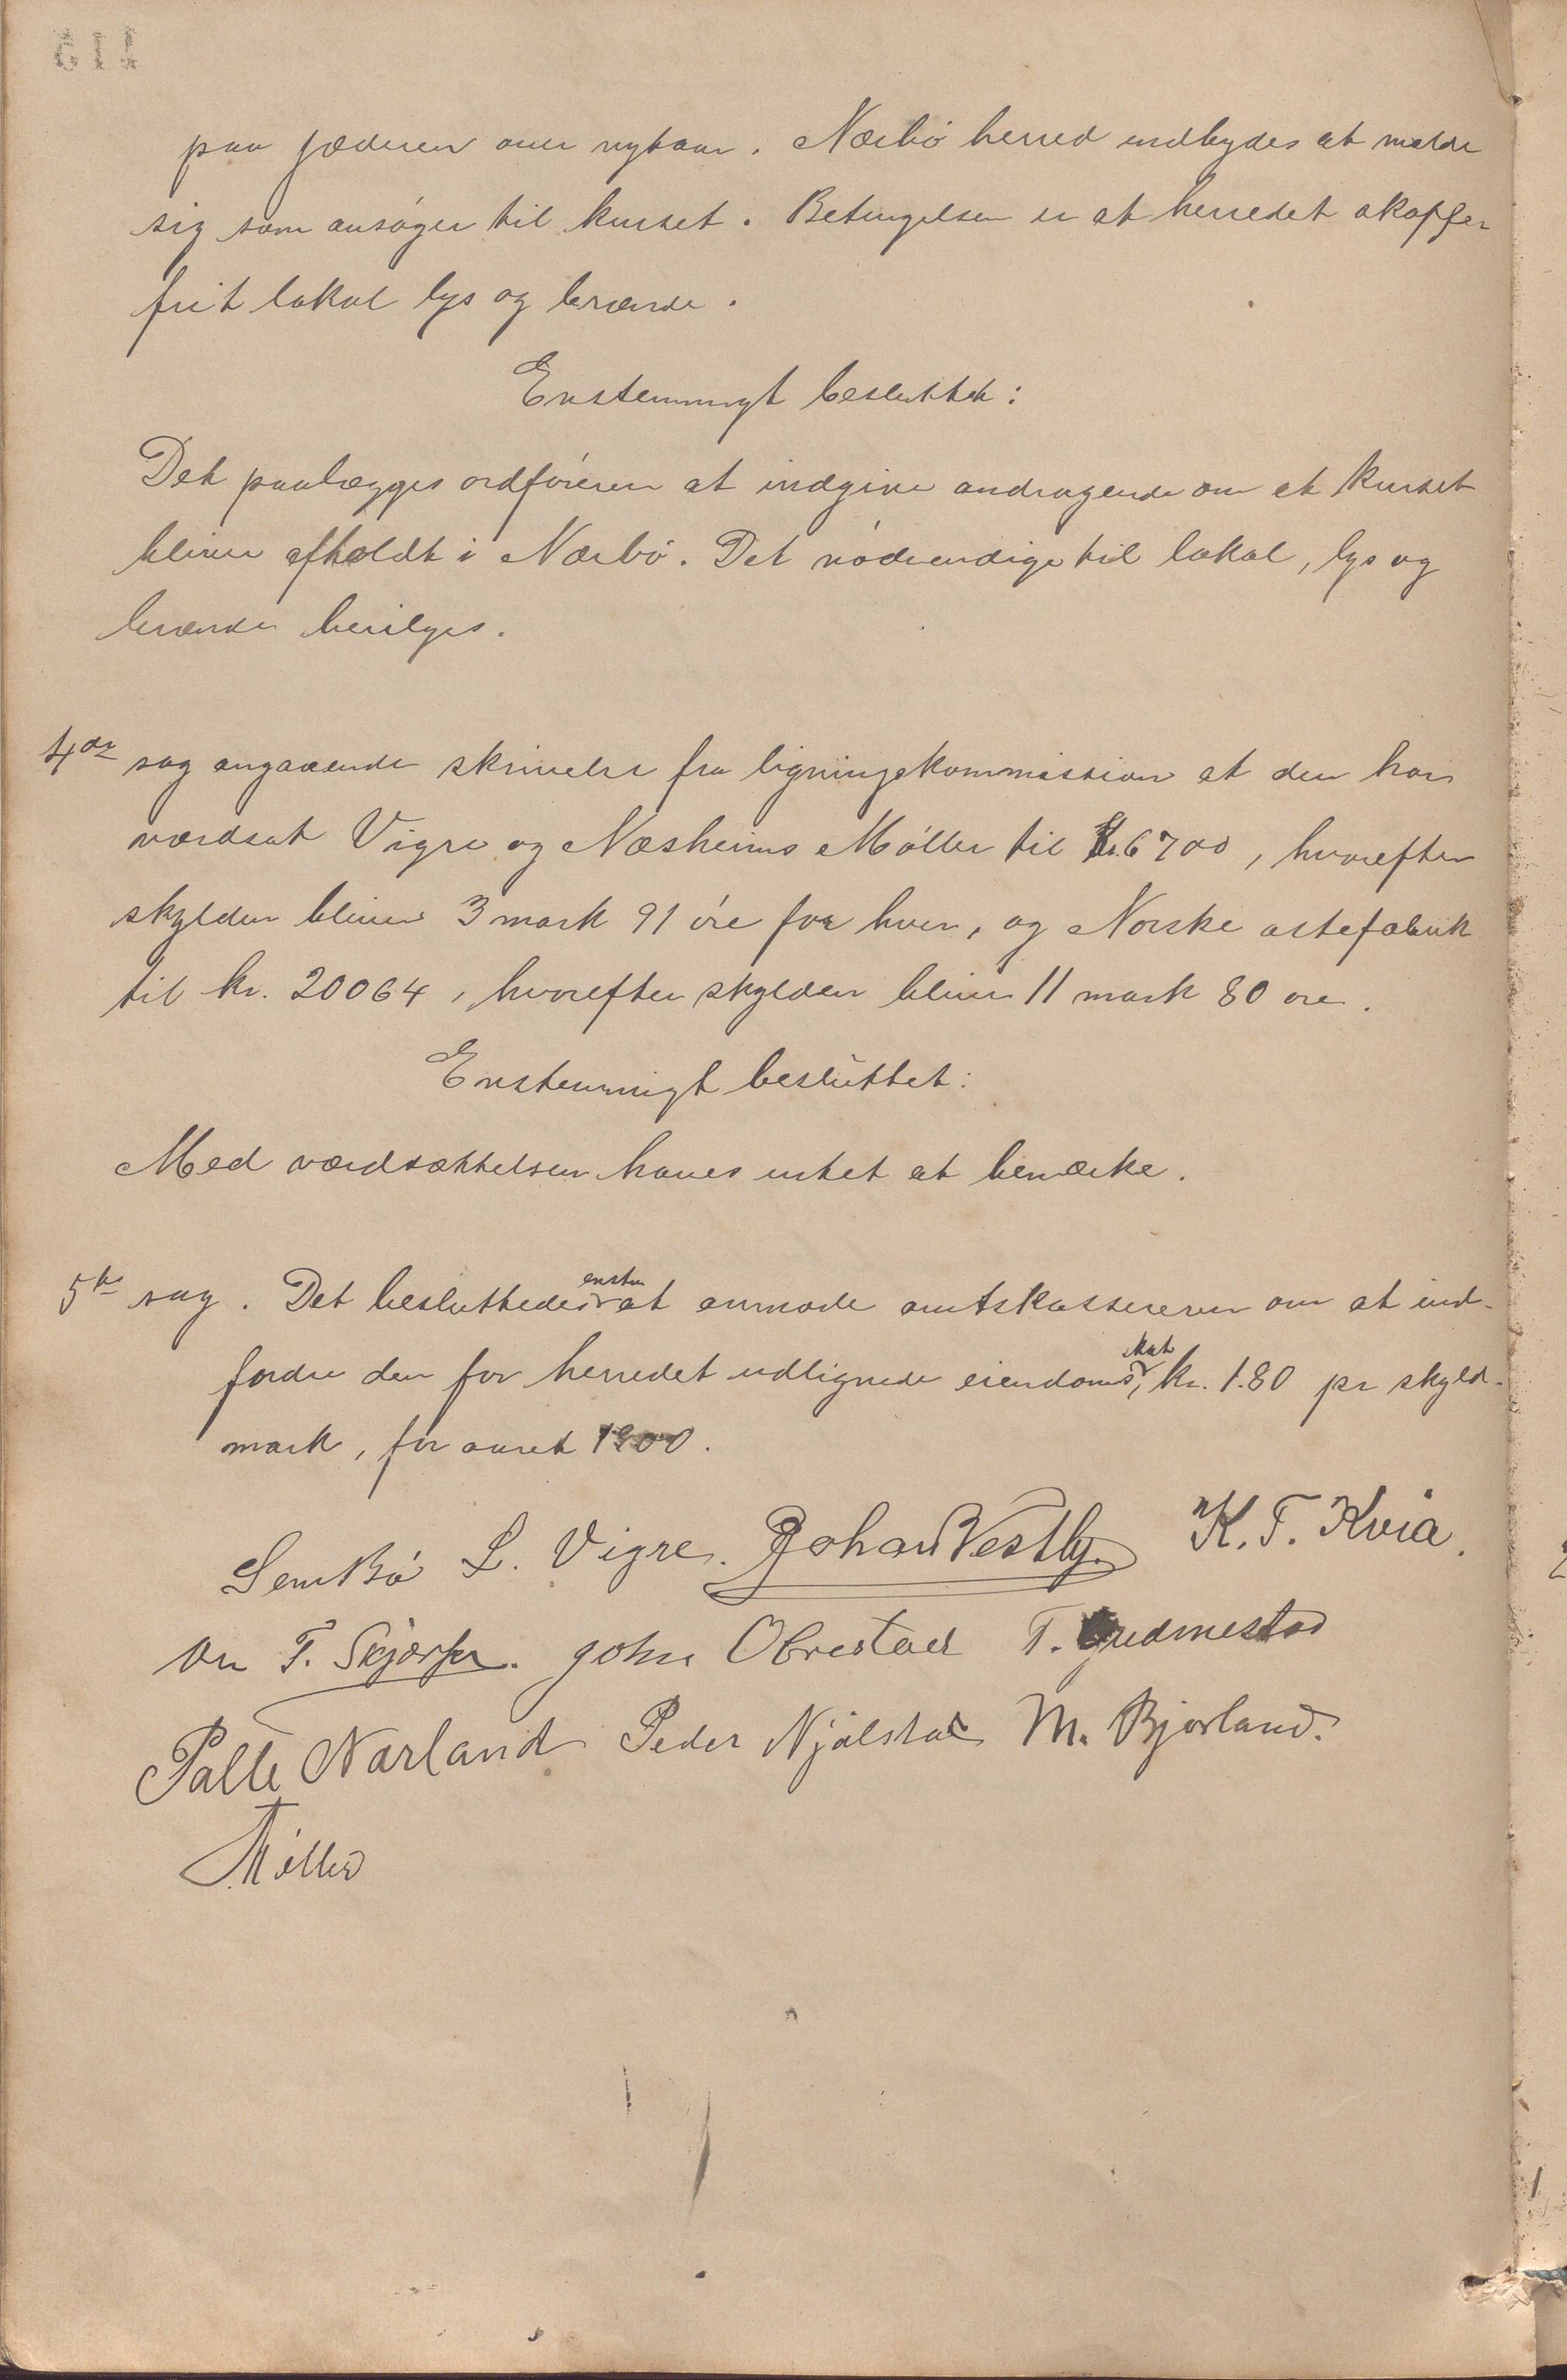 paa Jæderen over nytaar. Nærbö herred indbydes at melde
sig som ansöger til kurset. Betingelsen er at herredet skaffer
frit lokal lys og brænde.
Enstemmigt besluttet:
Det paalægges ordföreren at indgive andragende om at kurset
bliver afholdt i Nærbö. Det nödvendige til lokal, lys og
brænde bevilges.
4de sag angaaende skrivelse fra ligningskommission at den har
værdsat Vigre og Næsheims Möller til kr. 6700, hvorefter
skylden bliver 3 mark 91 öre for hver, og Norske ostefabrik
til kr. 20064, hvorefter skylden bliver 11 mark 80 ore.
Enstemmigt besluttet:
Med værdsættelsen haves intet at bemærke.
5te sag. Det besluttedes enstm at anmode amtskassereren om at ind-
fordre den for herredet udlignede eiendomsskat, kr. 1.80 pr skyld-
mark, for aaret 1900.
L. Vigre. Johan Vestly. K. T. Kvia.
T. Skjærpe. John Obrestad T. Gudmestad
Palle Nærland Peder Njålstad M. Bjorland.
Möller